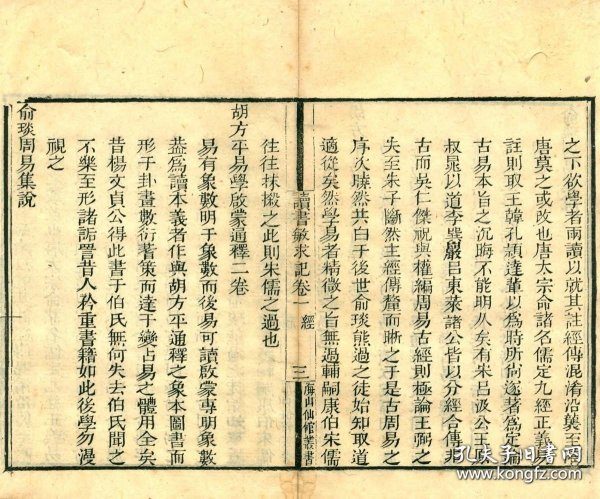 之下欲學者兩讀以就其註經傳混淆沿襲至
唐莫之或改也唐太宗命諸名儒定九經正義
註則取王韓孔穎達輩以爲時所尙遂著爲定
古易本旨之沉晦不能明久矣有宋呂汲公王
叔晁以道李巽巖呂東萊諸公皆以分經合傳非
古而吳仁傑祝與權編周易古經則極論王弼之
失至朱子斷然主經傳釐而晰之于是古周易之
序次曉然共白于後世俞琰熊過之徒始知取道
適從矣然學易者精微之旨無過輔嗣康伯宋儒
讀書敏求記卷一 經
三
海山仙館叢書
往往抹摋之此則朱儒之過也
胡方平易學啟蒙通釋二卷
易有象數明于象數而後易可讀啟蒙專明象數
葢爲讀本義者作與胡方平通釋之象本圖書而
形于卦畫數衍蓍策而達于變占易之體用全矣
昔楊文貞公得此書于伯氏無何失去伯氏聞之
不樂至形諸詬詈昔人矜重書籍如此後學勿漫
視之
俞琰周易集說
孔夫子旧书网
www.kongfz.com